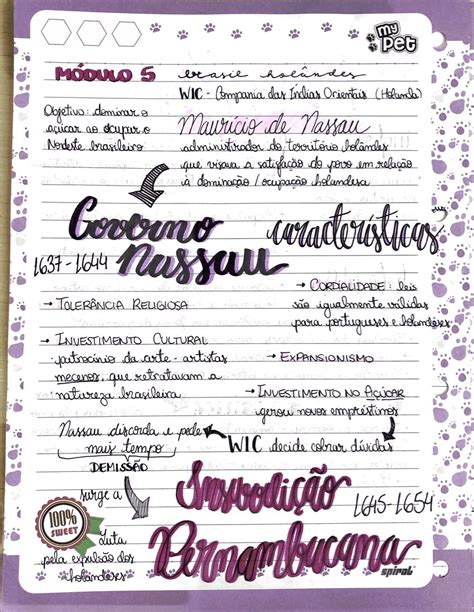 my Pet
MÓDULO 5 brasil holândes
WIC - Compania das Índias Orientais (Holanda)
Objetivo: dominar o
açúcar ao ocupar o
Nodeste brasileiro
Maurício de Nassau
administrador do território holândes
que visava a satisfação do povo em relação
à dominação / ocupação holandesa
Governo
Nassau
1637 - 1644
características
→ TOLERÂNCIA RELIGIOSA
→ INVESTIMENTO CULTURAL
patrocínio da arte - artistas
mecenos, que retratavam a
natureza brasileira
→ CORDIALIDADE: leis
são igualmente válidas
para portugueses e holandêses
→ EXPANSIONISMO
→ INVESTIMENTO NO AÇÚCAR
gerou novos empréstimos
WIC decide cobrar dívidas
Nassau discorda e pede
mais tempo
DEMISSÃO
surge a
Insurdição
Pernambucana
1645-1654
Luta
pela expulsão dos
holandêses
100%
SWEET
spiral